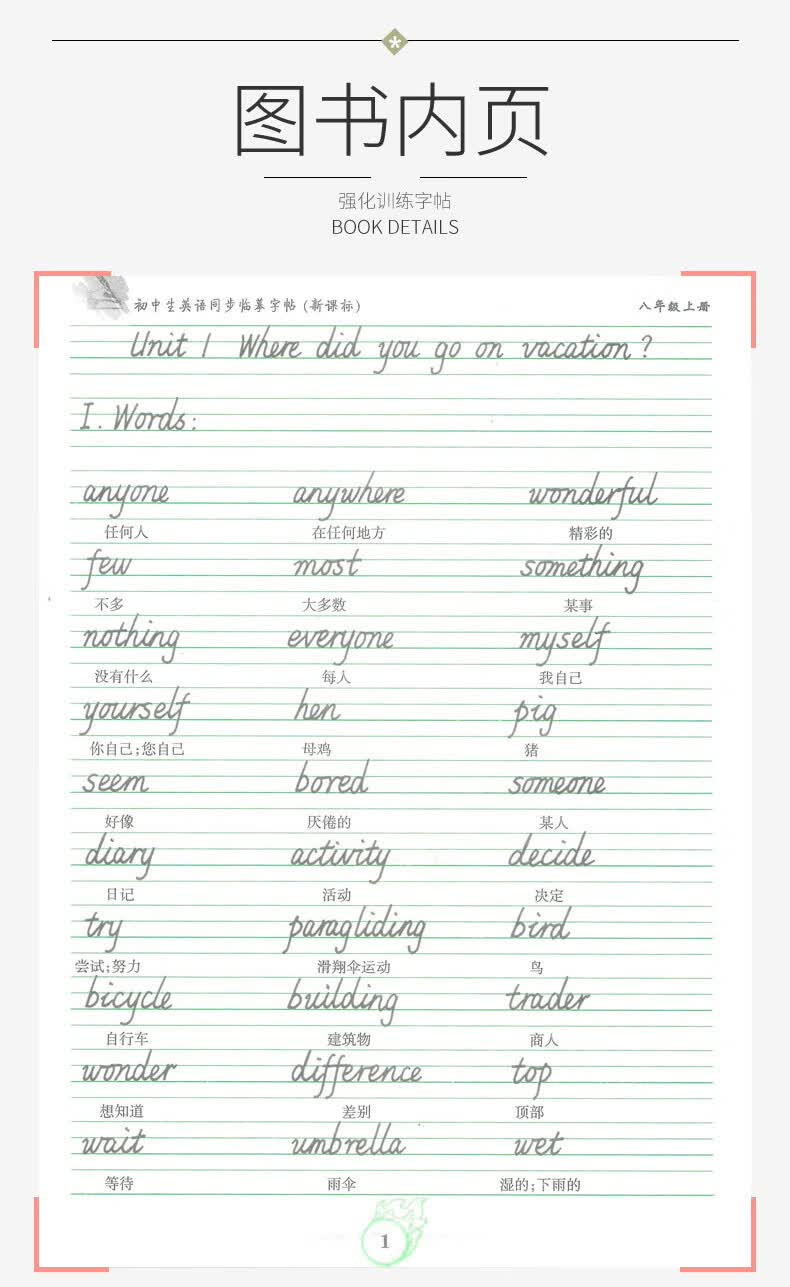 图书内页
强化训练字帖
BOOK DETAILS
初中生英语同步临摹字帖(新课标) 八年级上册
Unit 1 Where did you go on vacation?
I. Words:
anyone anywhere wonderful
任何人 在任何地方 精彩的
few most something
不多 大多数 某事
nothing everyone myself
没有什么 每人 我自己
yourself hen pig
你自己;您自己 母鸡 猪
seem bored someone
好像 厌倦的 某人
diary activity decide
日记 活动 决定
try paragliding bird
尝试;努力 滑翔伞运动 鸟
bicycle building trader
自行车 建筑物 商人
wonder difference top
想知道 差别 顶部
wait umbrella wet
等待 雨伞 湿的;下雨的
1